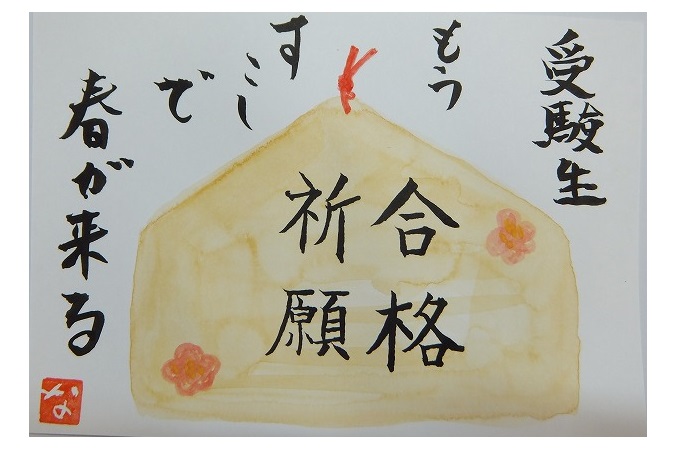 受験生
もう
すこし
で
春が来る
合格
祈願
な